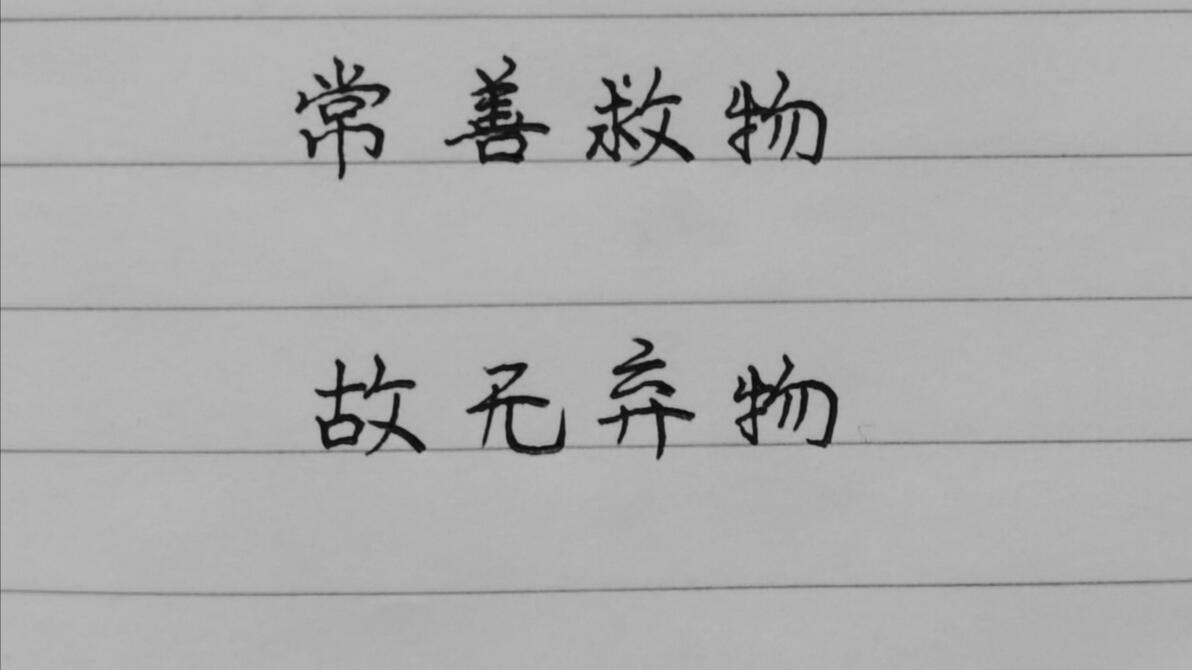 常善救物
故无弃物